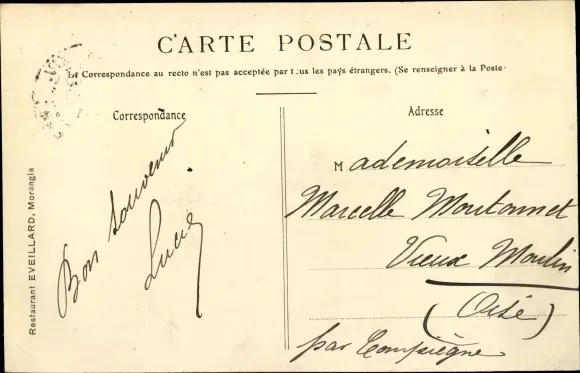 CARTE POSTALE
La Correspondance au recto n'est pas acceptée par tous les pays étrangers. (Se renseigner à la Poste
Correspondance
Bon souvenir
Lucie
Restaurant EVEILLARD, Morangis
Adresse
Mademoiselle
Marcelle Moutonnet
Vieux Moulin
(Oise)
par Compiègne